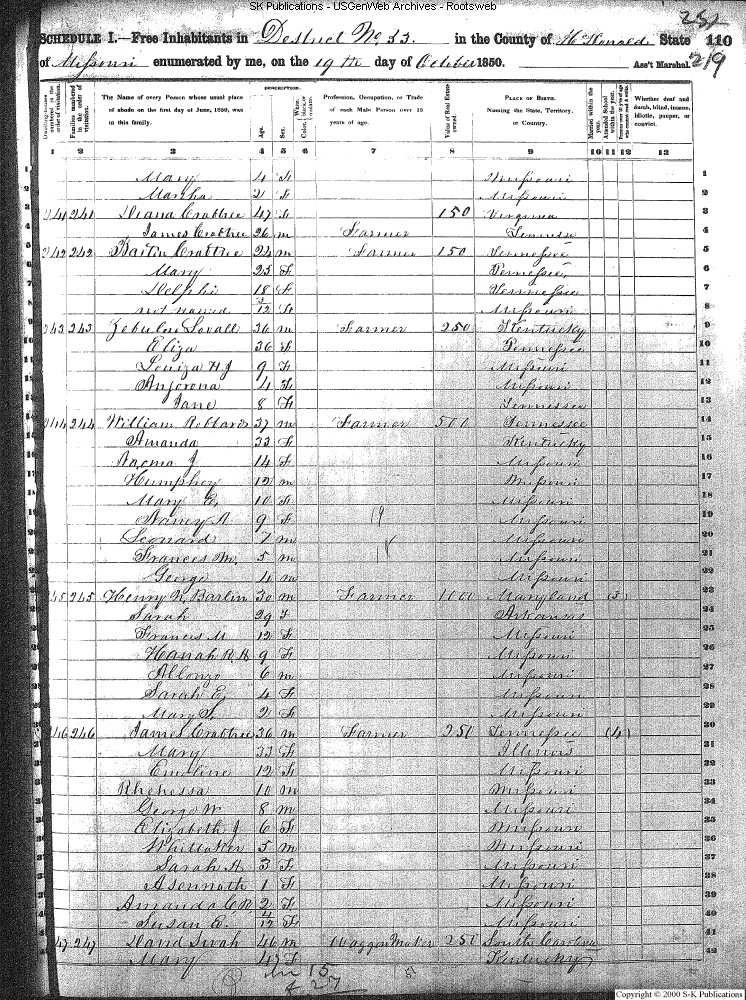 SK Publications - USGenWeb Archives - Rootsweb
SCHEDULE I.—Free Inhabitants in District No. 53. in the County of McDonald State 110
of Missouri enumerated by me, on the 19th day of October 1850. Ass't Marshal. 219
Dwelling-houses numbered in the order of visitation. Families numbered in the order of visitation. The Name of every Person whose usual place of abode on the first day of June, 1850, was in this family. DESCRIPTION. Age. Sex. White, black, or mulatto. Profession, Occupation, or Trade of each Male Person over 15 years of age. Value of Real Estate owned. PLACE OF BIRTH. Naming the State, Territory, or Country. Married within the year. Attended School within the year. Persons over 20 y'rs of age who cannot read & write. Whether deaf and dumb, blind, insane, idiotic, pauper, or convict.
1 2 3 4 5 6 7 8 9 10 11 12 13
Mary 4 F Missouri 1
Martha 2 F Missouri 2
241 241 Diana Crabtree 47 F 150 Virginia 3
James Crabtree 26 m Farmer Tennessee 4
242 242 Bartin Crabtree 24 m Farmer 150 Tennessee 5
Mary 25 F Tennessee 6
Delphi 18 F Tennessee 7
not named 3/12 F Missouri 8
243 243 Zebulon 36 m Farmer 250 Kentucky 9
Eliza 36 F Tennessee 10
Louiza H J 9 F Missouri 11
Anjorona 4 F Missouri 12
Jane 8 F Tennessee 13
244 244 William Robbards 37 m Farmer 500 Tennessee 14
Amanda 33 F Kentucky 15
Naoma J 14 F Missouri 16
Humphrey 12 m Missouri 17
Mary E. 10 F Missouri 18
Nancy A 9 F 19 Missouri 19
Leonard 7 m Missouri 20
Frances M. 5 m 18 Missouri 21
George 4 m Missouri 22
245 245 Henry N. Barlin 30 m Farmer 1000 Maryland (5) 23
Sarah 29 F Arkansas 24
Francis M 12 F Missouri 25
Hanah R. H 9 F Missouri 26
Allonzo 6 m Missouri 27
Sarah E. 4 F Missouri 28
Mary S. 2 F Missouri 29
246 246 James Crabtree 36 m Farmer 250 Tennessee (4) 30
Mary 33 F Illinois 31
Emiline 12 F Missouri 32
Rhehessa 10 m Missouri 33
George W. 8 m Missouri 34
Elizabeth J 6 F Missouri 35
Whittaker 5 m Missouri 36
Sarah A 3 F Missouri 37
Asennath 1 F Missouri 38
Amanda C R 2 F Missouri 39
Susan E. 4/12 F Missouri 40
247 247 David 46 m Waggon Maker 250 South Carolina 41
Mary 43 F Kentucky 42
m 15
f 27
Copyright © 2000 S-K Publications